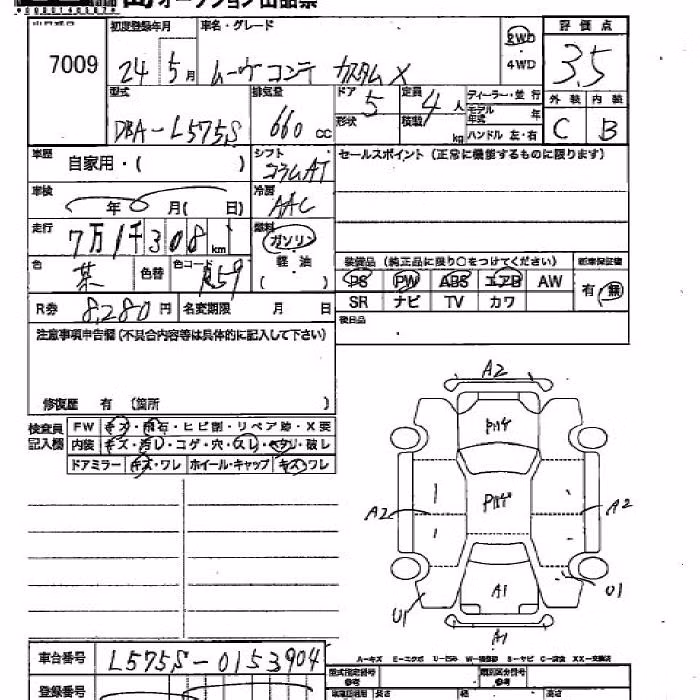 オークション出品票
7009
初度登録年月 車名・グレード 評価点
24 5月 ムーヴコンテ カスタムX 2WD 3.5
4WD
型式 排気量 ドア 5 定員 4人 ディーラー・並行 外装 内装
DBA-L575S 660cc 形状 積載 kg モデル年式 年 C B
ハンドル 左・右
車歴 シフト セールスポイント(正常に機能するものに限ります)
自家用・( ) コラムAT
車検 冷房
年 月( 日) AAC
走行 燃料
7万1千308km ガソリン
色 色替 色コード R59 軽油 装備品(純正品に限り○をつけてください) 新車保証書
( ) PS PW ABS エアB AW 有・無
SR ナビ TV カワ
R券 8,280円 名変期限 月 日 後日品
注意事項申告欄(不具合内容等は具体的に記入して下さい)
修復歴 有(箇所 )
検査員記入欄 FW キズ・飛石・ヒビ割・リペア跡・X要
内装 キズ・汚レ・コゲ・穴・スレ・ヘタリ・破レ
ドアミラー キズ・ワレ ホイール・キャップ キズ・ワレ
A2
A2 A2
A1
U1 U1
A1
車台番号 L575S-0153904
A-キズ E-エクボ U-凹み W-補修跡 S-サビ C-腐食 XX-交換済
登録番号 型式指定番号 類別区分番号
長さ 幅 高さ